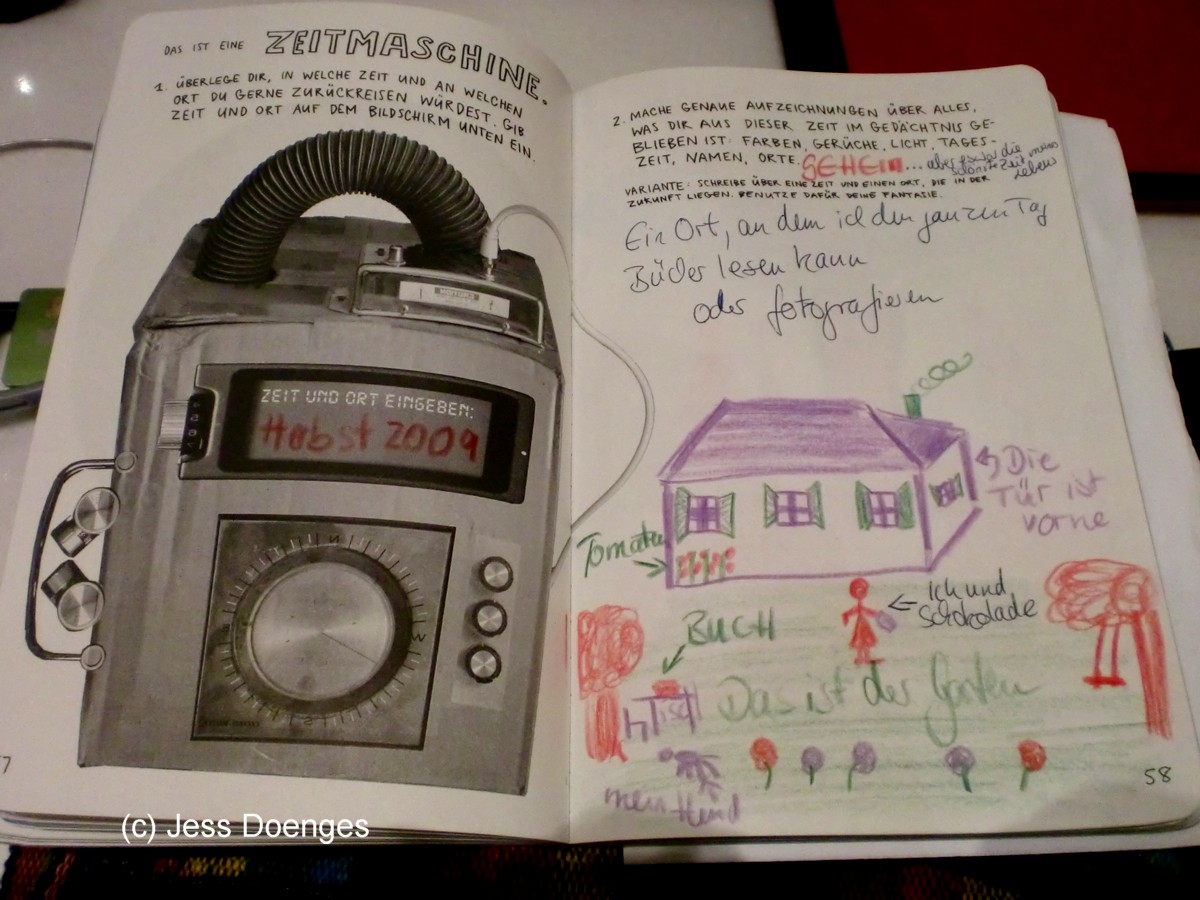 DAS IST EINE ZEITMASCHINE.
1. ÜBERLEGE DIR, IN WELCHE ZEIT UND AN WELCHEN
ORT DU GERNE ZURÜCKREISEN WÜRDEST. GIB
ZEIT UND ORT AUF DEM BILDSCHIRM UNTEN EIN.
ZEIT UND ORT EINGEBEN:
Herbst 2009
2. MACHE GENAUE AUFZEICHNUNGEN ÜBER ALLES,
WAS DIR AUS DIESER ZEIT IM GEDÄCHTNIS GE-
BLIEBEN IST: FARBEN, GERÜCHE, LICHT, TAGES-
ZEIT, NAMEN, ORTE. GEHEIM... aber es war die
schönste Zeit meines
Lebens
VARIANTE: SCHREIBE ÜBER EINE ZEIT UND EINEN ORT, DIE IN DER
ZUKUNFT LIEGEN. BENUTZE DAFÜR DEINE FANTASIE.
Ein Ort, an dem ich den ganzen Tag
Bücher lesen kann
oder fotografieren
Die
Tür ist
vorne
Tomaten
Ich und
Schokolade
BUCH
Tisch
Das ist der Garten
mein Hund
58
(c) Jess Doenges